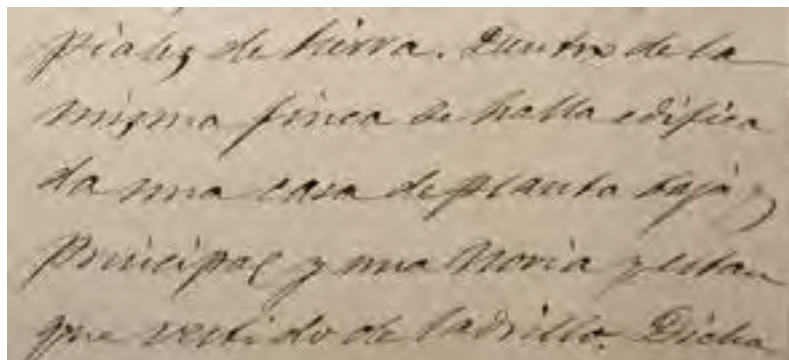 piales de tierra. Dentro de la
misma finca se halla edifica
da una casa de planta baja y
Principal y una Noria y estan
que vestido de ladrillo. Dicha